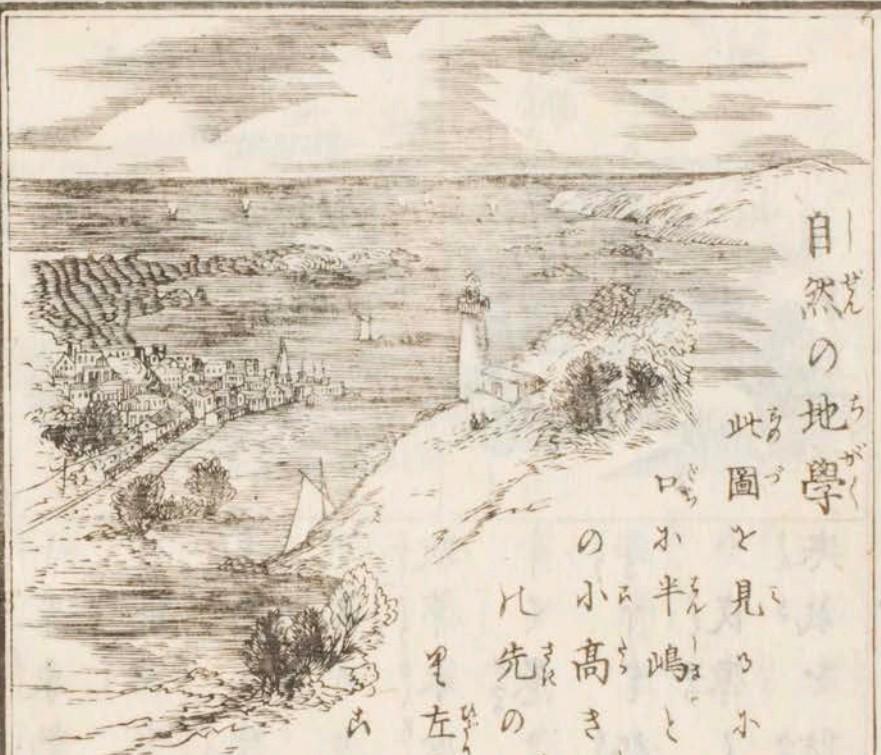 自然の地學
此圖を見るに
口に半嶋と
の小高き
の先の
里左